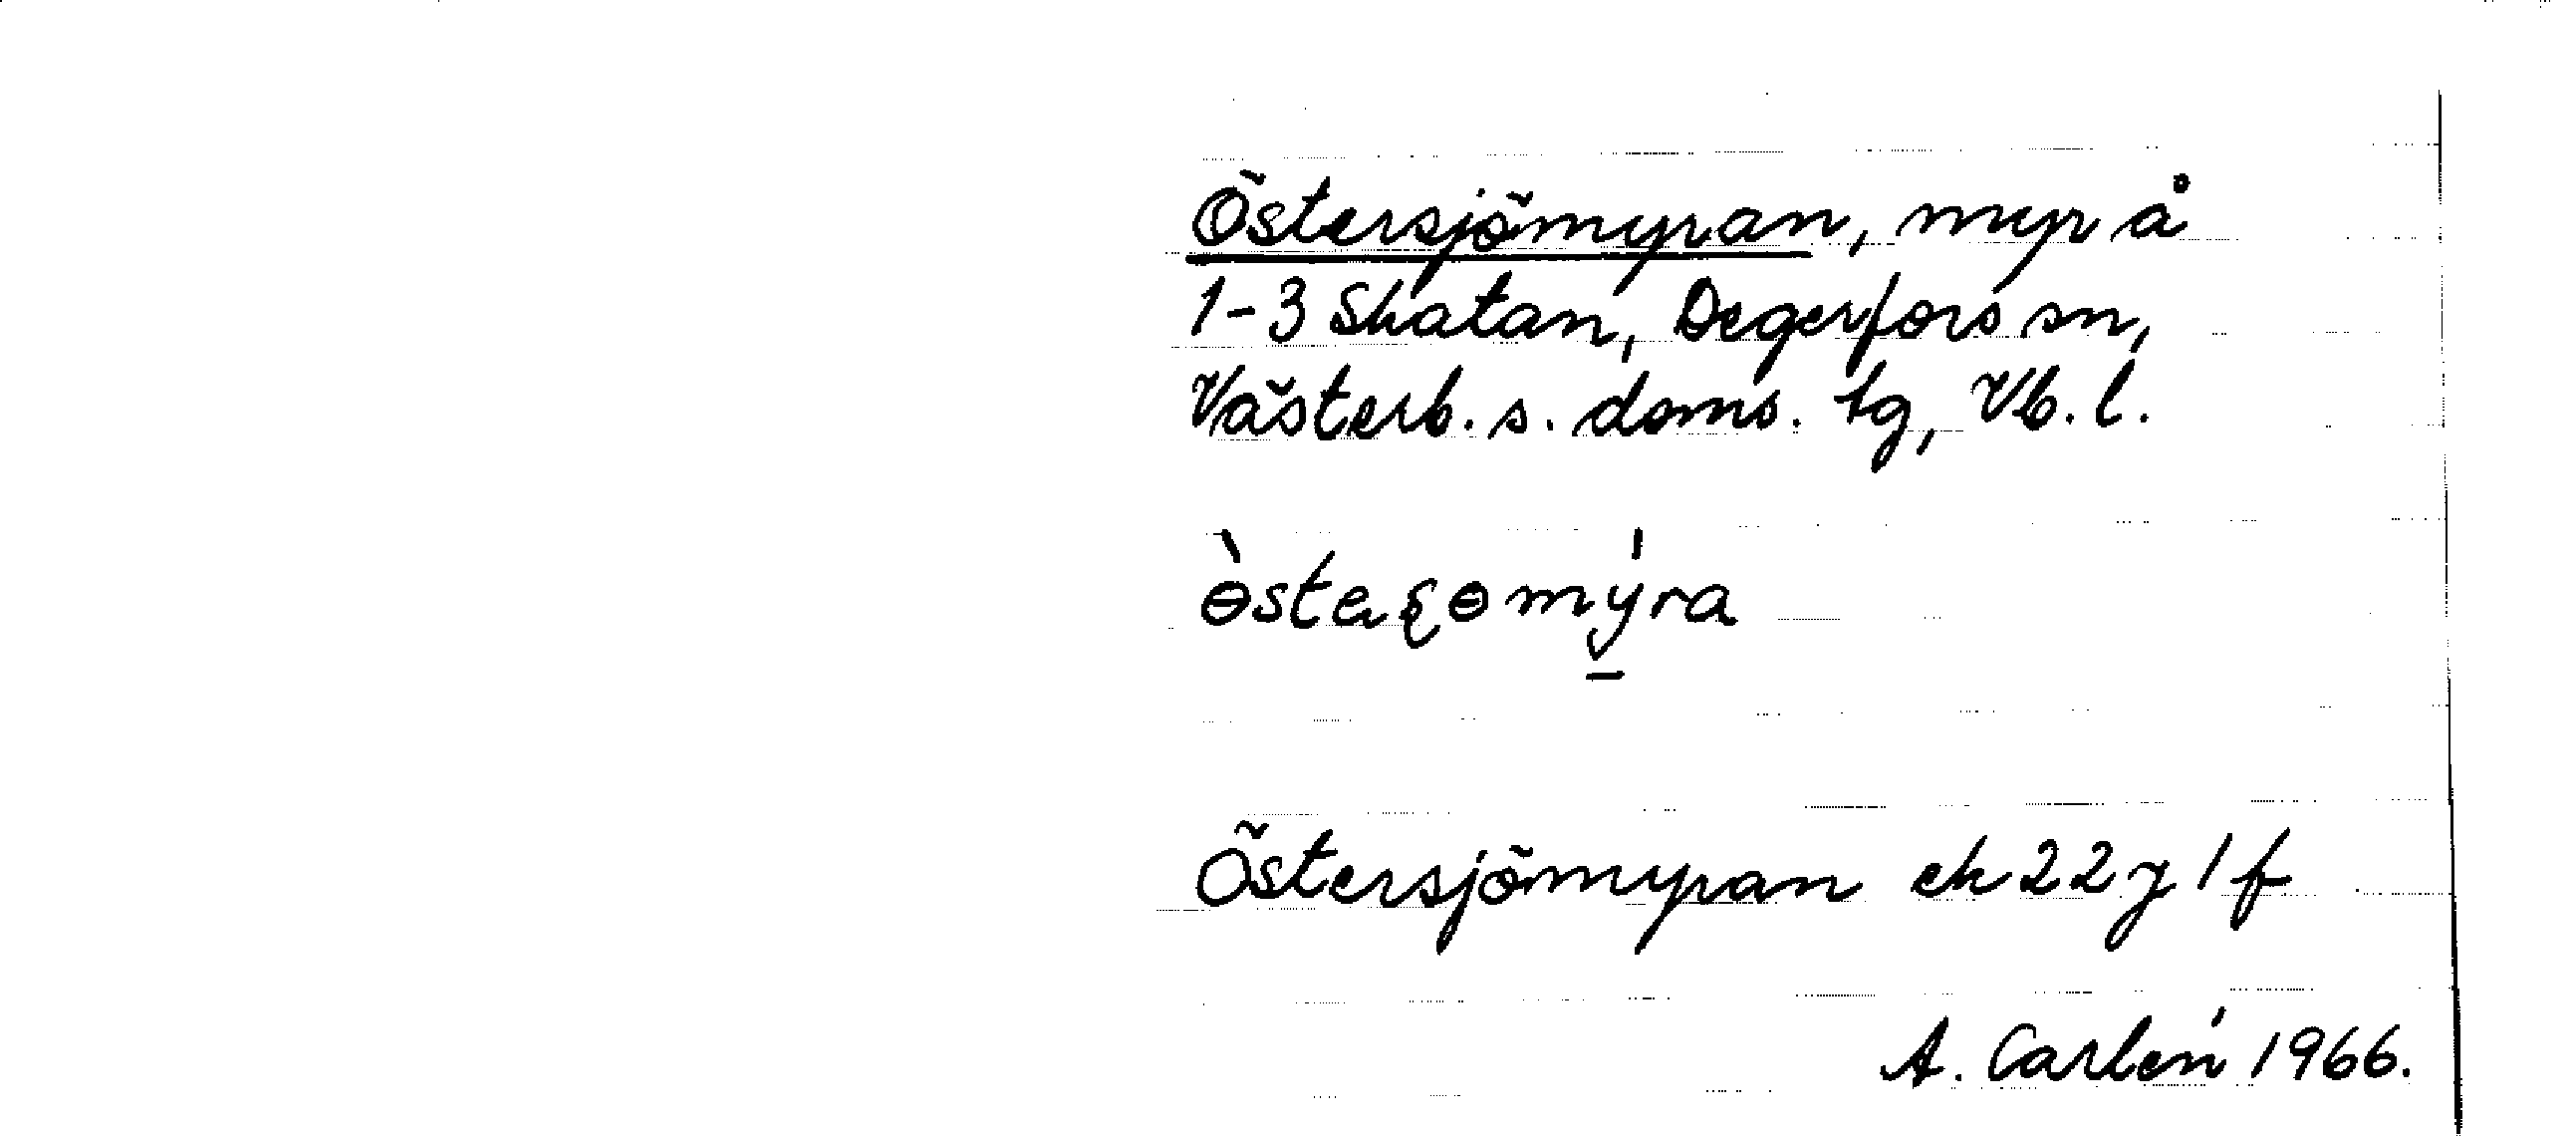 Östersjömyran, myr å
1-3 Skatan, Degerfors sn,
Västerb. s. doms. tg, Vb. l.
ɵ̀steʂɵmýra
Östersjömyran ek 22 y 1 f
A. Carlén 1966.